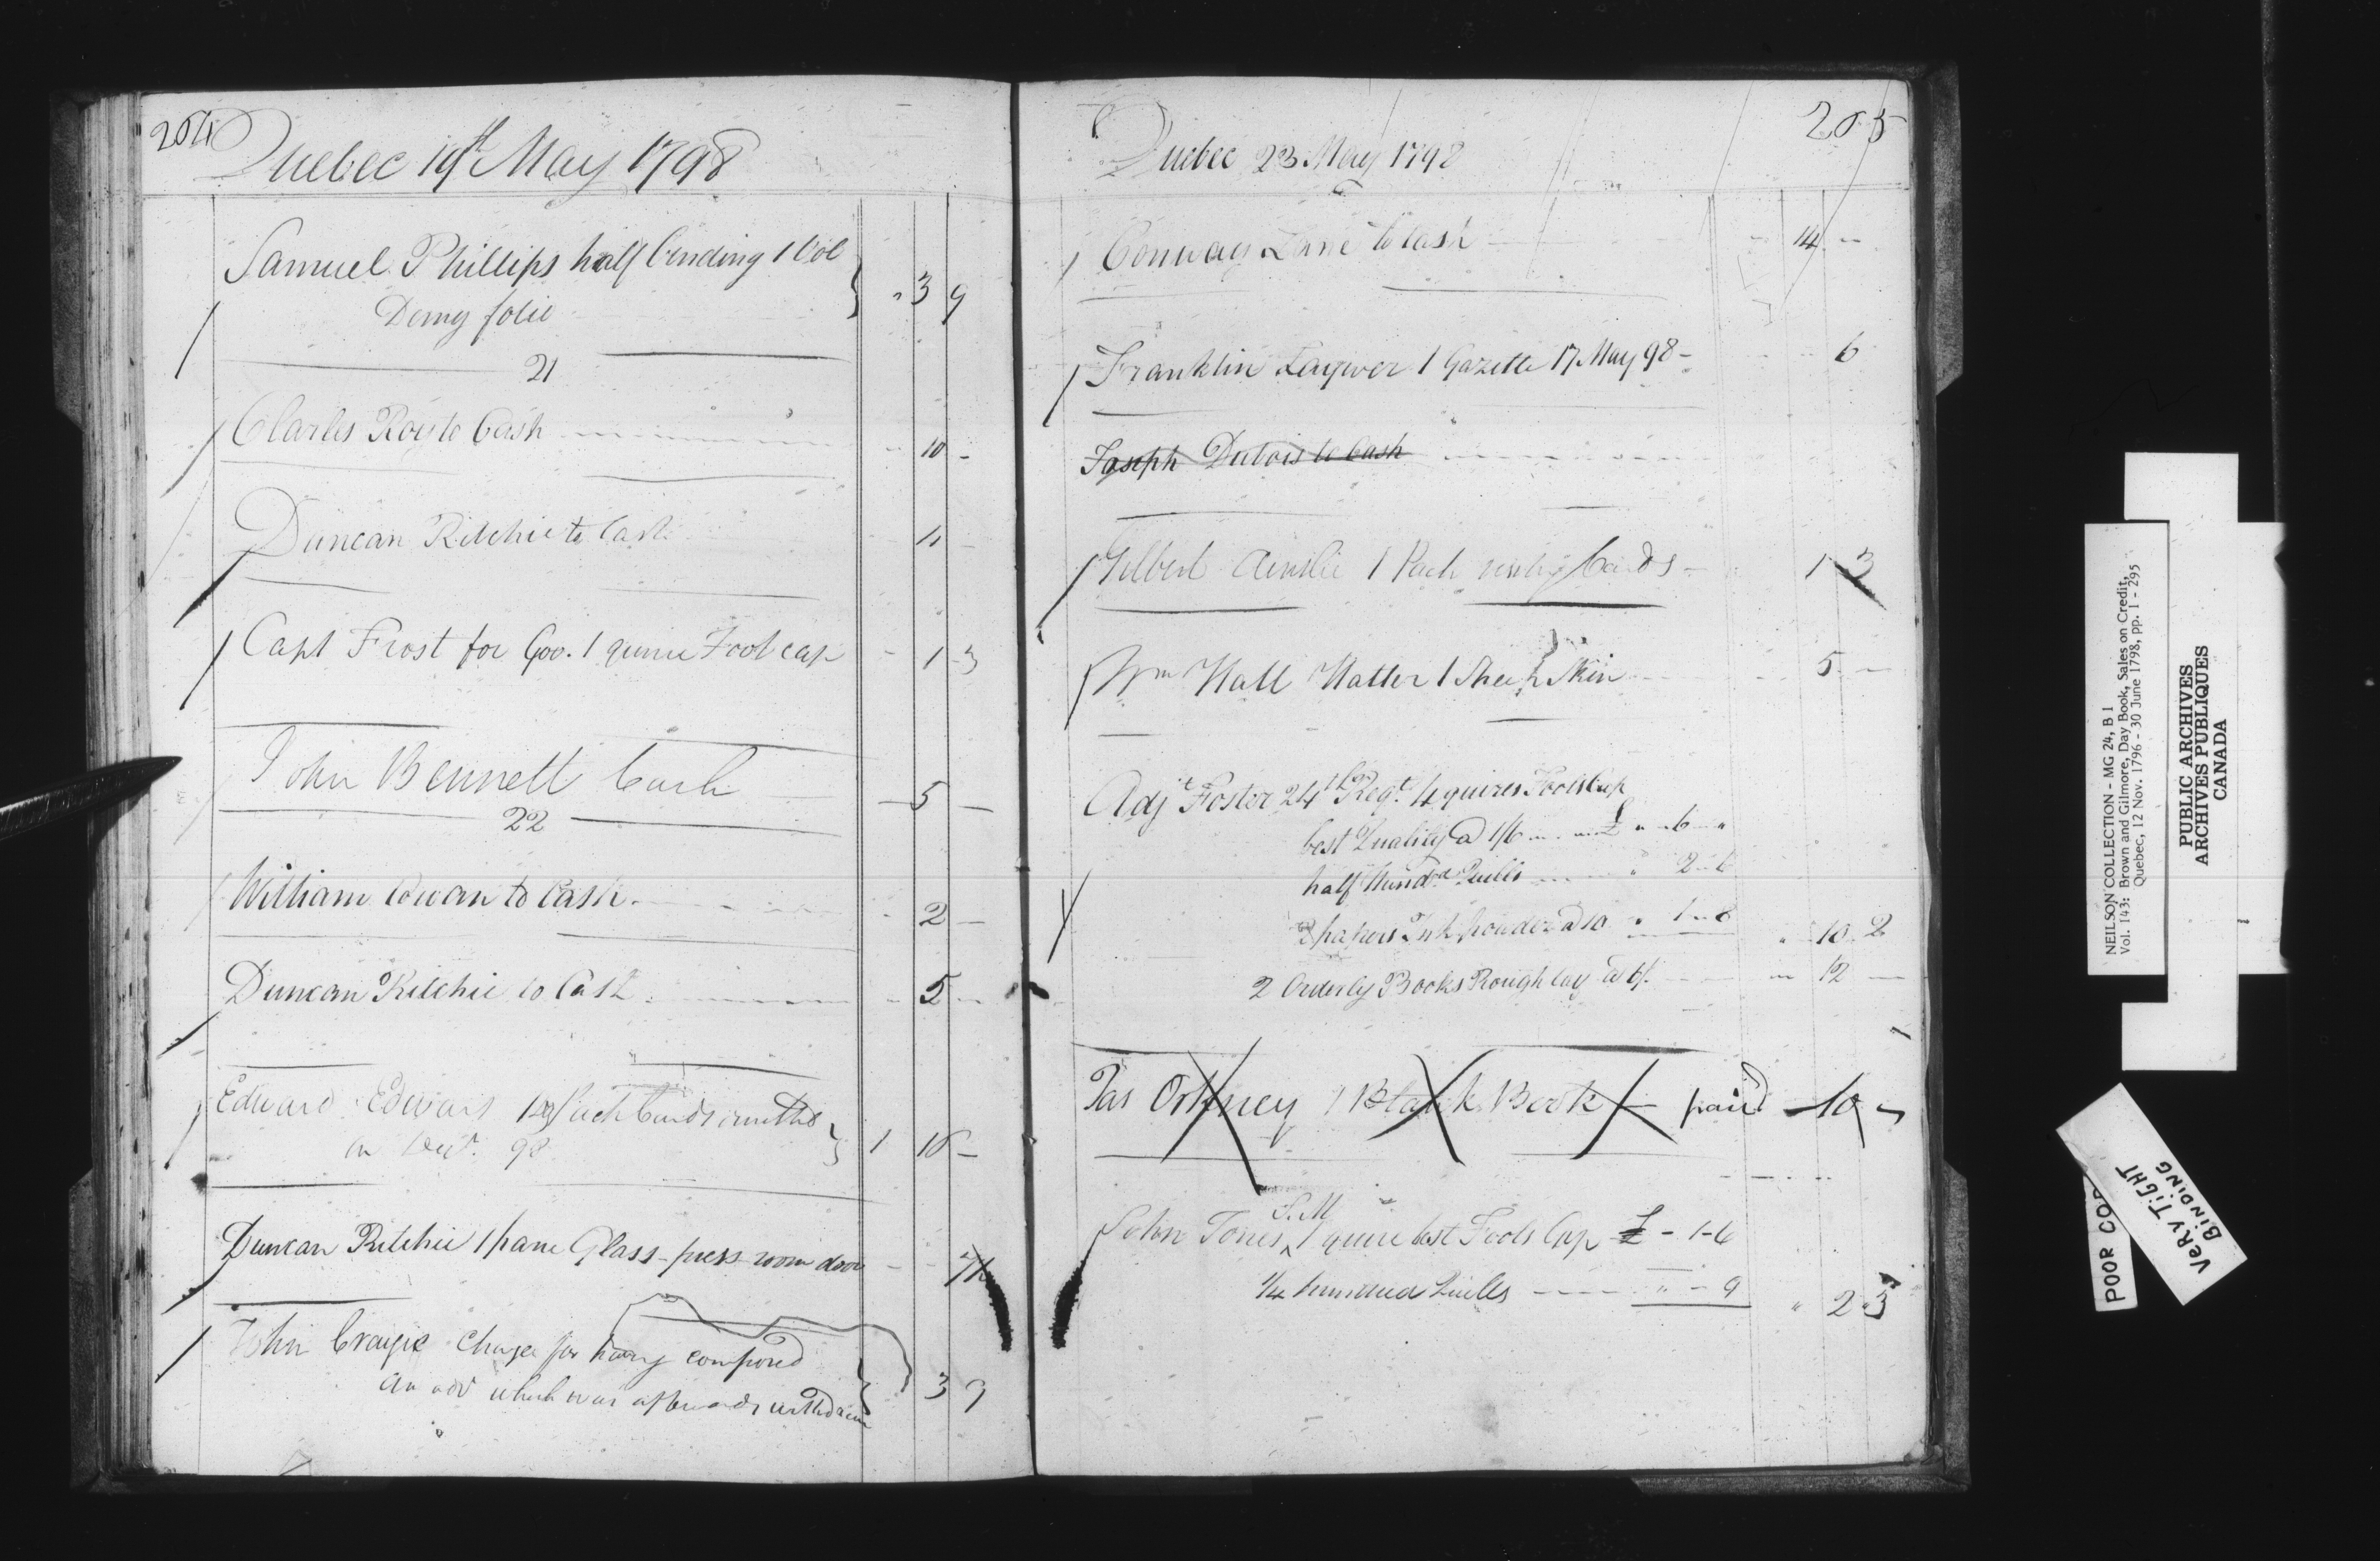 264
Quebec 19th May 1798
Samuel Phillips half binding 1 Vol
Demy folio " 3 9
21
Charles Roy to Cash - 10 -
Duncan Ritchie to Cash 11 -
Capt Frost for Gov. 1 quire Foolscap - 1 3
John Bennett Cash - 5 -
22
William Cowan to Cash - 2 -
Duncan Ritchie to Cash - 5 -
Edward Edwards Pack Cards
98 1 16 -
Duncan Ritchie 1 pane Glass - press room door - -
John Craigie Charge for having composed
an adv which was afterwards withdrawn 3 9
265
Quebec 23 May 1798
Conway Lane to Cash - 14 -
Franklin 1 Gazette 17 May 98 - 6
Joseph Dubois to Cash
Gilbert Ainslie 1 Pack Cards - 1 3
Wm Hall Hatter 1 Sheep Skin 5 -
Adjt Foster 24th Regt. 4 quires Foolscap
best Quality @ 1/6 £ " - 6 - "
half Hundd Quills " 2 - 6
2 papers Ink powder @ 10 " 1 - 8 " 10 2
2 Orderly Books Rough @ 6/. 12 -
Jas Orkney 1 Blank Book paid - 10 -
S. M
John Jones ^ 1 quire best Fools Cap £ - 1 - 6
1/4 hundred Quills " - 9 " 2 3
NEILSON COLLECTION - MG 24, B 1
Vol. 143: Brown and Gilmore, Day Book, Sales on Credit,
Quebec, 12 Nov. 1796 - 30 June 1798, pp. 1 - 295
PUBLIC ARCHIVES
ARCHIVES PUBLIQUES
CANADA
POOR
VERY TiGHT
BiNDiNG